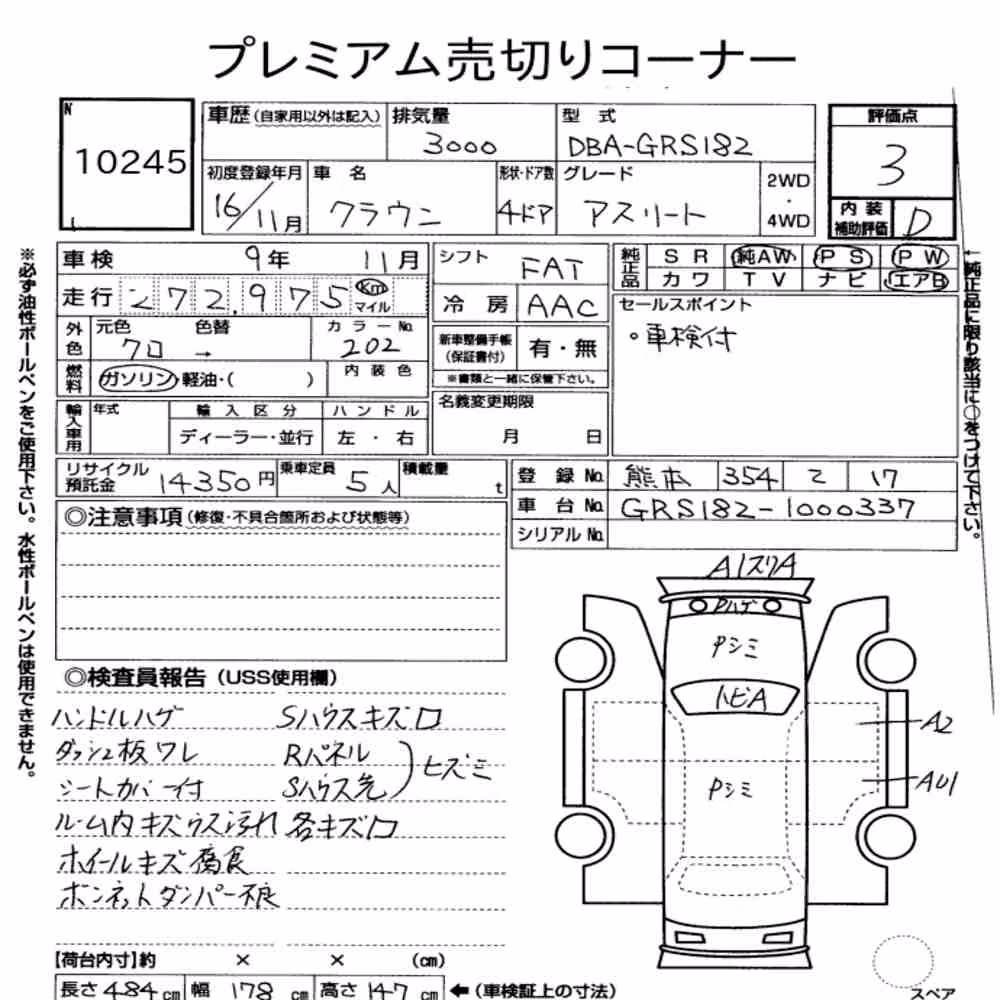 プレミアム売切りコーナー
N 10245
車歴(自家用以外は記入) 排気量 3000 型式 DBA-GRS182 評価点 3
初度登録年月 16/11月 車名 クラウン 形状・ドア数 4ドア グレード アスリート 2WD・4WD 内装補助評価 D
車検 9年 11月 シフト FAT 純正品 SR 純AW PS PW
走行 272,975 Km マイル 冷房 AAC カワ TV ナビ エアB
外色 元色 クロ → 色替 カラーNo. 202
新車整備手帳(保証書付) 有・無 ※書類と一緒に保管下さい。
セールスポイント
。車検付
燃料 ガソリン・軽油・( ) 内装色
輸入車用 年式 輸入区分 ディーラー・並行 ハンドル 左・右
名義変更期限 月 日
リサイクル預託金 14350円 乗車定員 5人 積載量 t
登録No. 熊本 354 2 17
車台No. GRS182-1000337
シリアルNo.
◎注意事項(修復・不具合箇所および状態等)
※必ず油性ボールペンをご使用下さい。水性ボールペンは使用できません。
←純正品に限り該当に○をつけて下さい。
◎検査員報告(USS使用欄)
ハンドルハゲ Sハウスキズロ
ダッシュ板ワレ Rパネル
シートカバー付 Sハウス先 ) ヒズミ
ルーム内キズウス汚れ 各キズロ
ホイールキズ腐食
ボンネットダンパー不良
A1スリA
Pハゲ
Pシミ
トビA
A2
Pシミ
AU1
【荷台内寸】約 × × (cm)
長さ 484 cm 幅 178 cm 高さ 147 cm ←(車検証上の寸法)
スペア